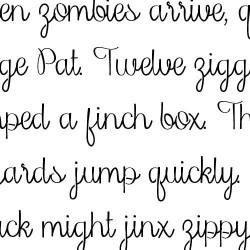 en zombies arrive, q
ge Pat. Twelve zigg
ped a finch box. Th
ards jump quickly.
ack might jinx zippy